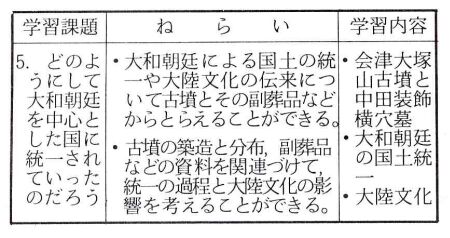 学習課題
ねらい
学習内容
5. どのよ
うにして
大和朝廷
を中心と
した国に
統一され
ていった
のだろう
・大和朝廷による国土の統
一や大陸文化の伝来につ
いて古墳とその副葬品など
からとらえることができる。
・古墳の築造と分布，副葬品
などの資料を関連づけて，
統一の過程と大陸文化の影
響を考えることができる。
・会津大塚
山古墳と
中田装飾
横穴墓
・大和朝廷
の国土統
一
・大陸文化